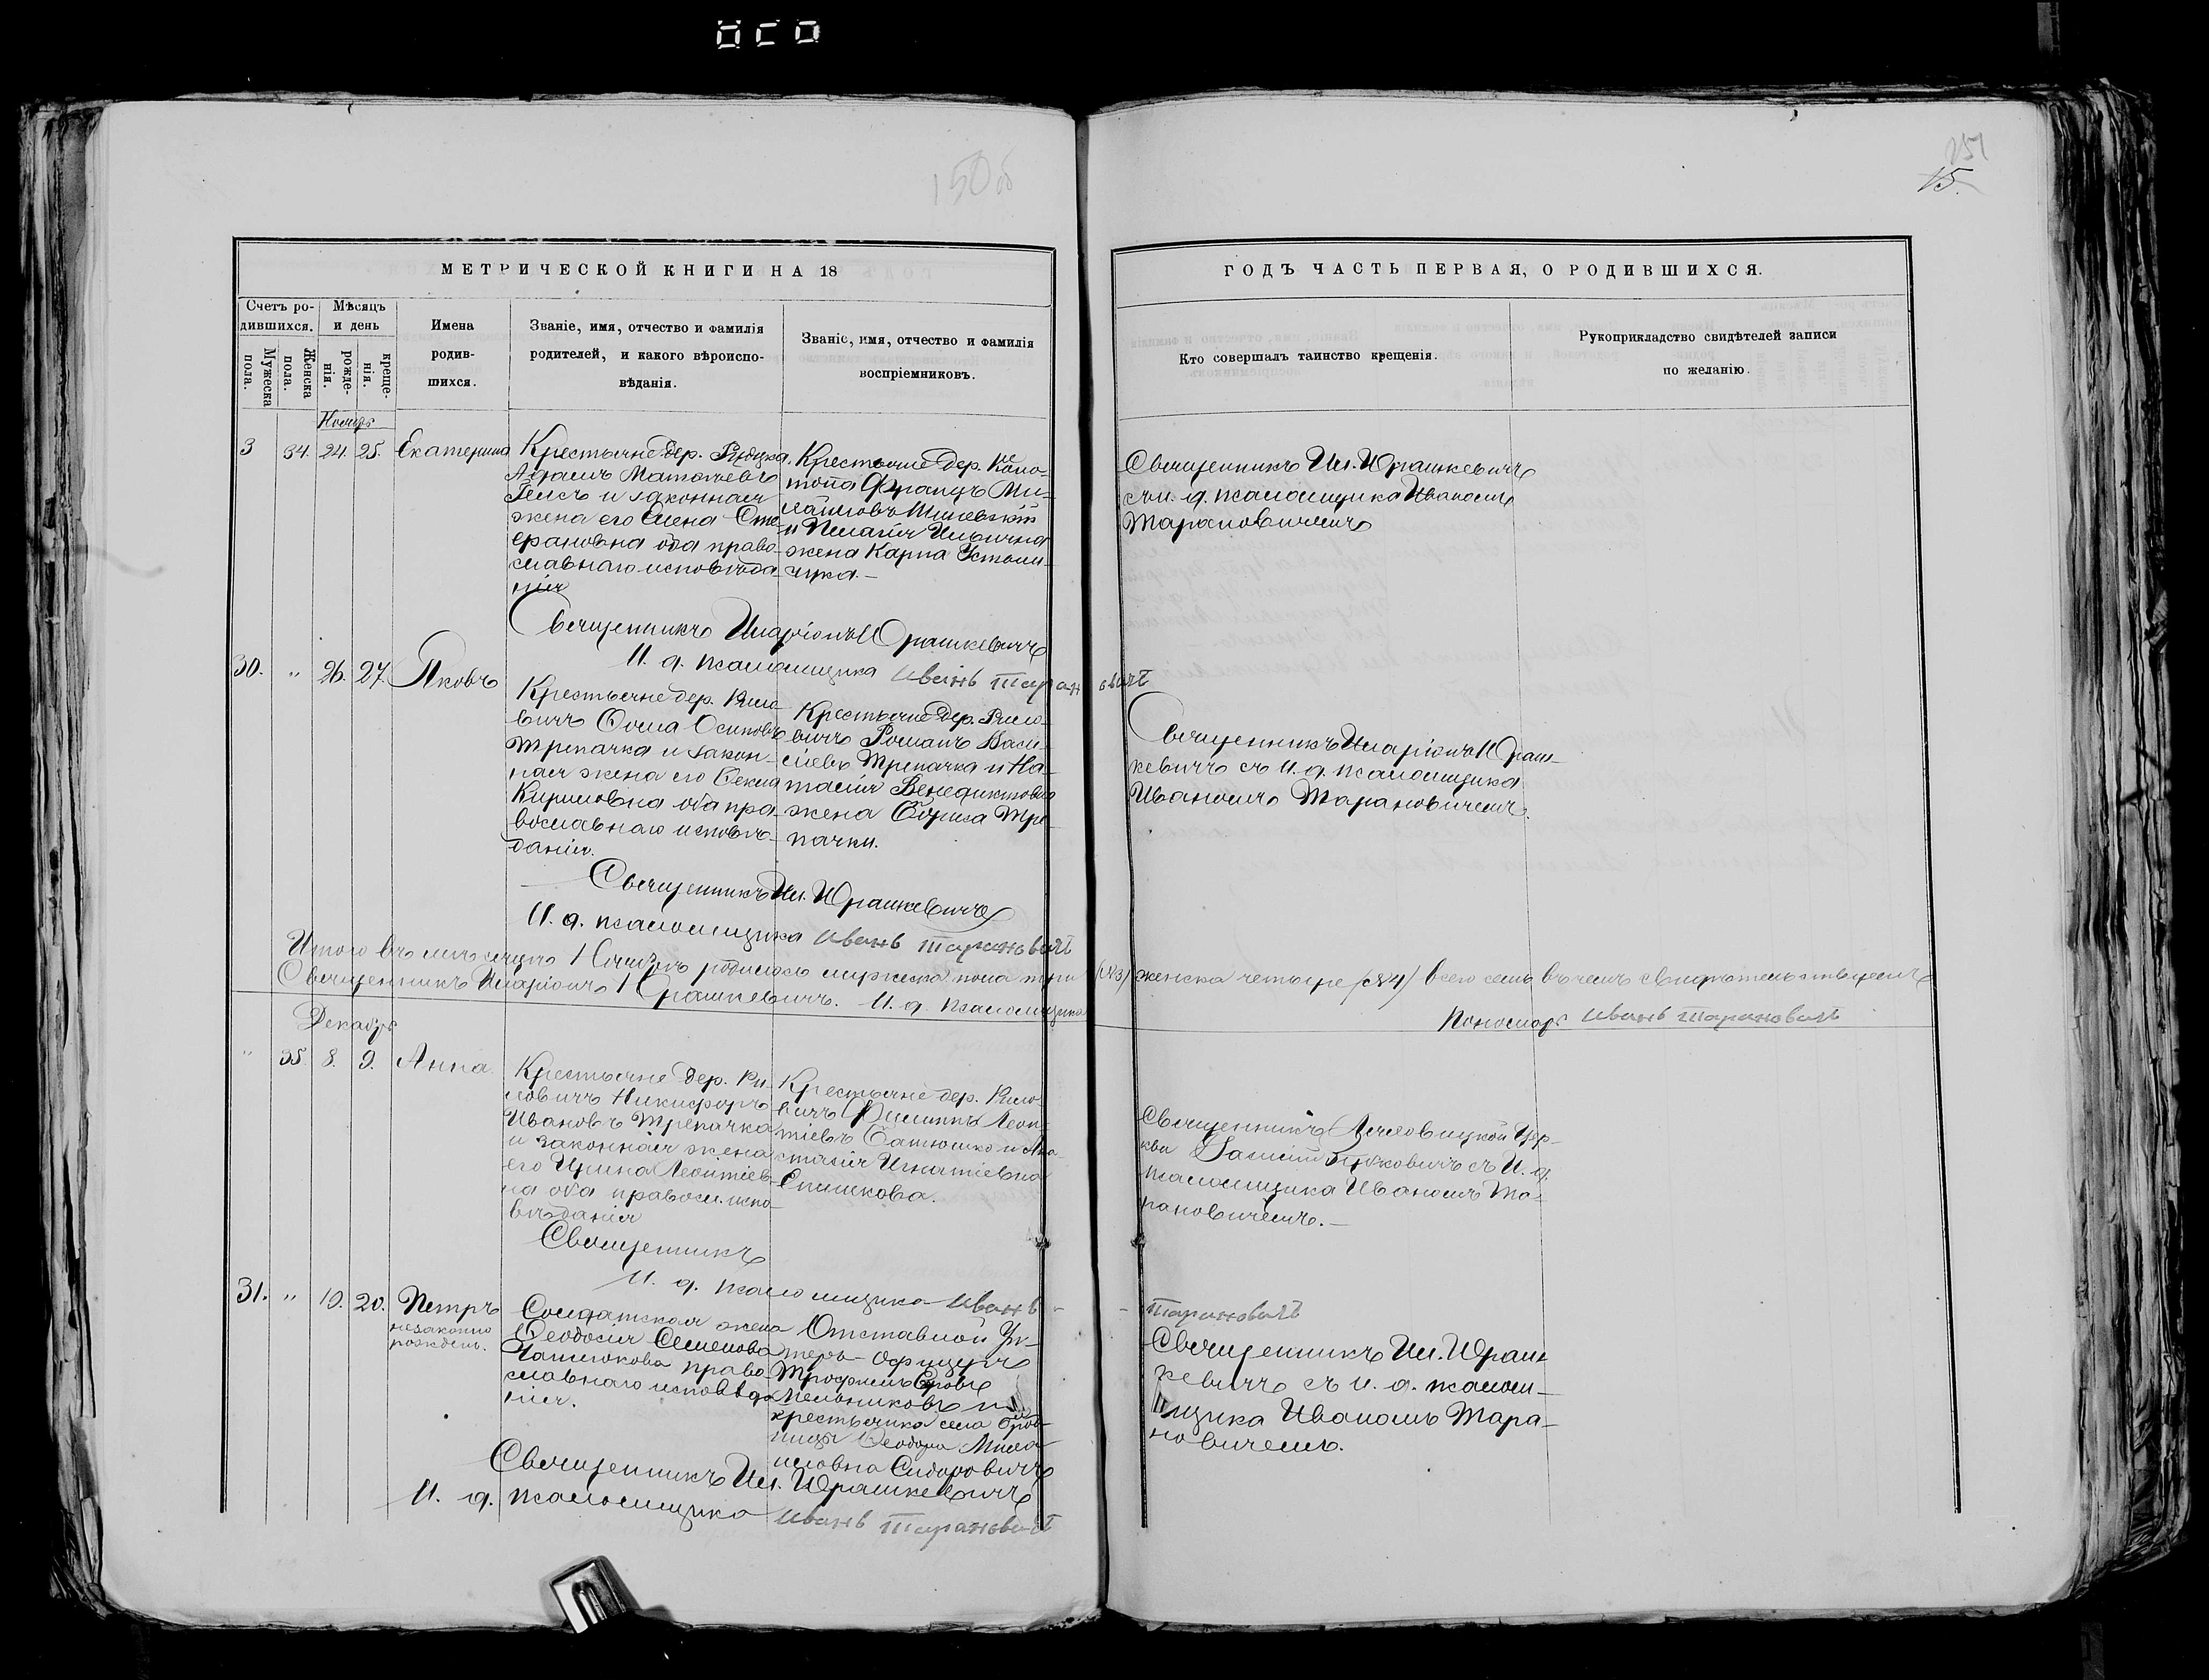 150 об
151
15.
МЕТРИЧЕСКОЙ КНИГИ НА 18
ГОДЪ ЧАСТЬ ПЕРВАЯ, О РОДИВШИХСЯ.
Счетъ ро-
дившихся.
Мужеска
пола.
Женска
пола.
Мѣсяцъ
и день
рожде-
нія.
креще-
нія.
Имена
родив-
шихся.
Званіе, имя, отчество и фамилія
родителей, и какого вѣроиспо-
вѣданія.
Званіе, имя, отчество и фамилія
воспріемниковъ.
Кто совершалъ таинство крещенія.
Рукоприкладство свидѣтелей записи
по желанію.
Ноябрь
3 34. 24. 25. Екатерина
Крестьяне дер.
и законная
жена его Елена Сте-
фановна оба право-
славнаго исповѣда-
нія
Крестьяне дер. Коно-
топа Францъ Ми-
и Пелагія Ильична
жена Карпа
Священникъ Ил. Юрашкевичъ
съ и. д. псаломщика Иваномъ
Тарановичемъ
Священникъ Иларіонъ Юрашкевичъ
И. д. псаломщика Иванъ Тарановичъ
30. „ 26. 27. Яковъ
Крестьяне дер. Рило-
вичъ Ѳома Осиповъ
Трепачка и закон-
ная жена его Ѳекла
Кирилловна оба пра-
вославнаго исповѣ-
данія.
Крестьяне дер. Рило-
вичъ Романъ Васи-
ліевъ Трепачка и На-
талія Венедиктовна
жена Бориса Тре-
пачки.
Священникъ Иларіонъ Юраш-
кевичъ съ И. д. псаломщика
Иваномъ Тарановичемъ.
Священникъ Ил. Юрашкевичъ
И. д. псаломщика Иванъ Тарановичъ
Итого въ мѣсяцѣ Ноябрѣ родилось мужеска пола три (№3) женска четыре (№4) всего семь въ чемъ свидѣтельствуемъ
Священникъ Иларіонъ Юрашкевичъ. И. д. псаломщика
Пономарь Иванъ Тарановичъ
Декабрь
„ 35 8. 9. Анна.
Крестьяне дер. Ри-
ловичъ Никифоръ
Ивановъ Трепачка
и законная жена
его Ирина Леонтіев-
на оба правосл. испо-
вѣданія
Крестьяне дер. Рило-
вичъ Филиппъ Леон-
тіевъ Батюшко и Ана-
стасія Игнатіевна
Священникъ
кви съ И. д.
псаломщика Иваномъ Та-
рановичемъ. —
Священникъ
И. д. псаломщика Иванъ -
- Тарановичъ
31. „ 19. 20. Петръ
незаконно
рожден.
Солдатская жена
Ѳеодосія Семенова
право-
славнаго исповѣда-
нія.
Отставной Ун-
теръ-Офицеръ
Трофимъ
Мельниковъ и
крестьянка села
Сидоровичъ
Священникъ Ил. Юраш-
кевичъ съ И. д. псалом-
щика Иваномъ Тара-
новичемъ.
Священникъ Ил. Юрашкевичъ
И. д. псаломщика Иванъ Тарановичъ